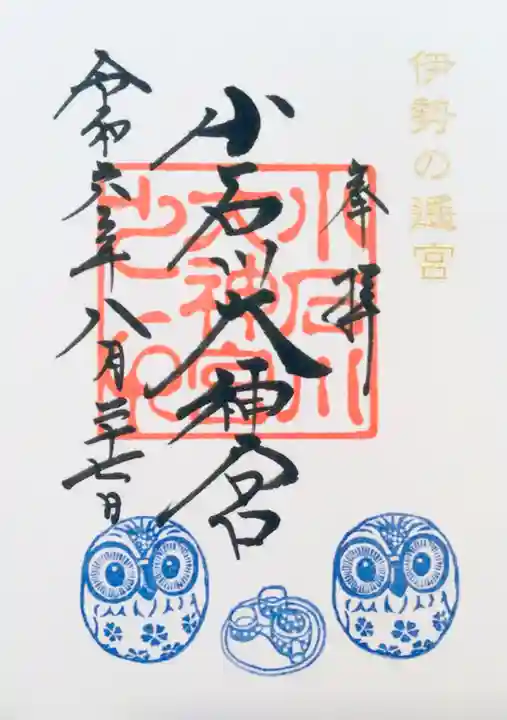 伊勢の遥宮
奉拝
小石川大神宮
令和六年八月二十七日
小石川
大神宮
之印